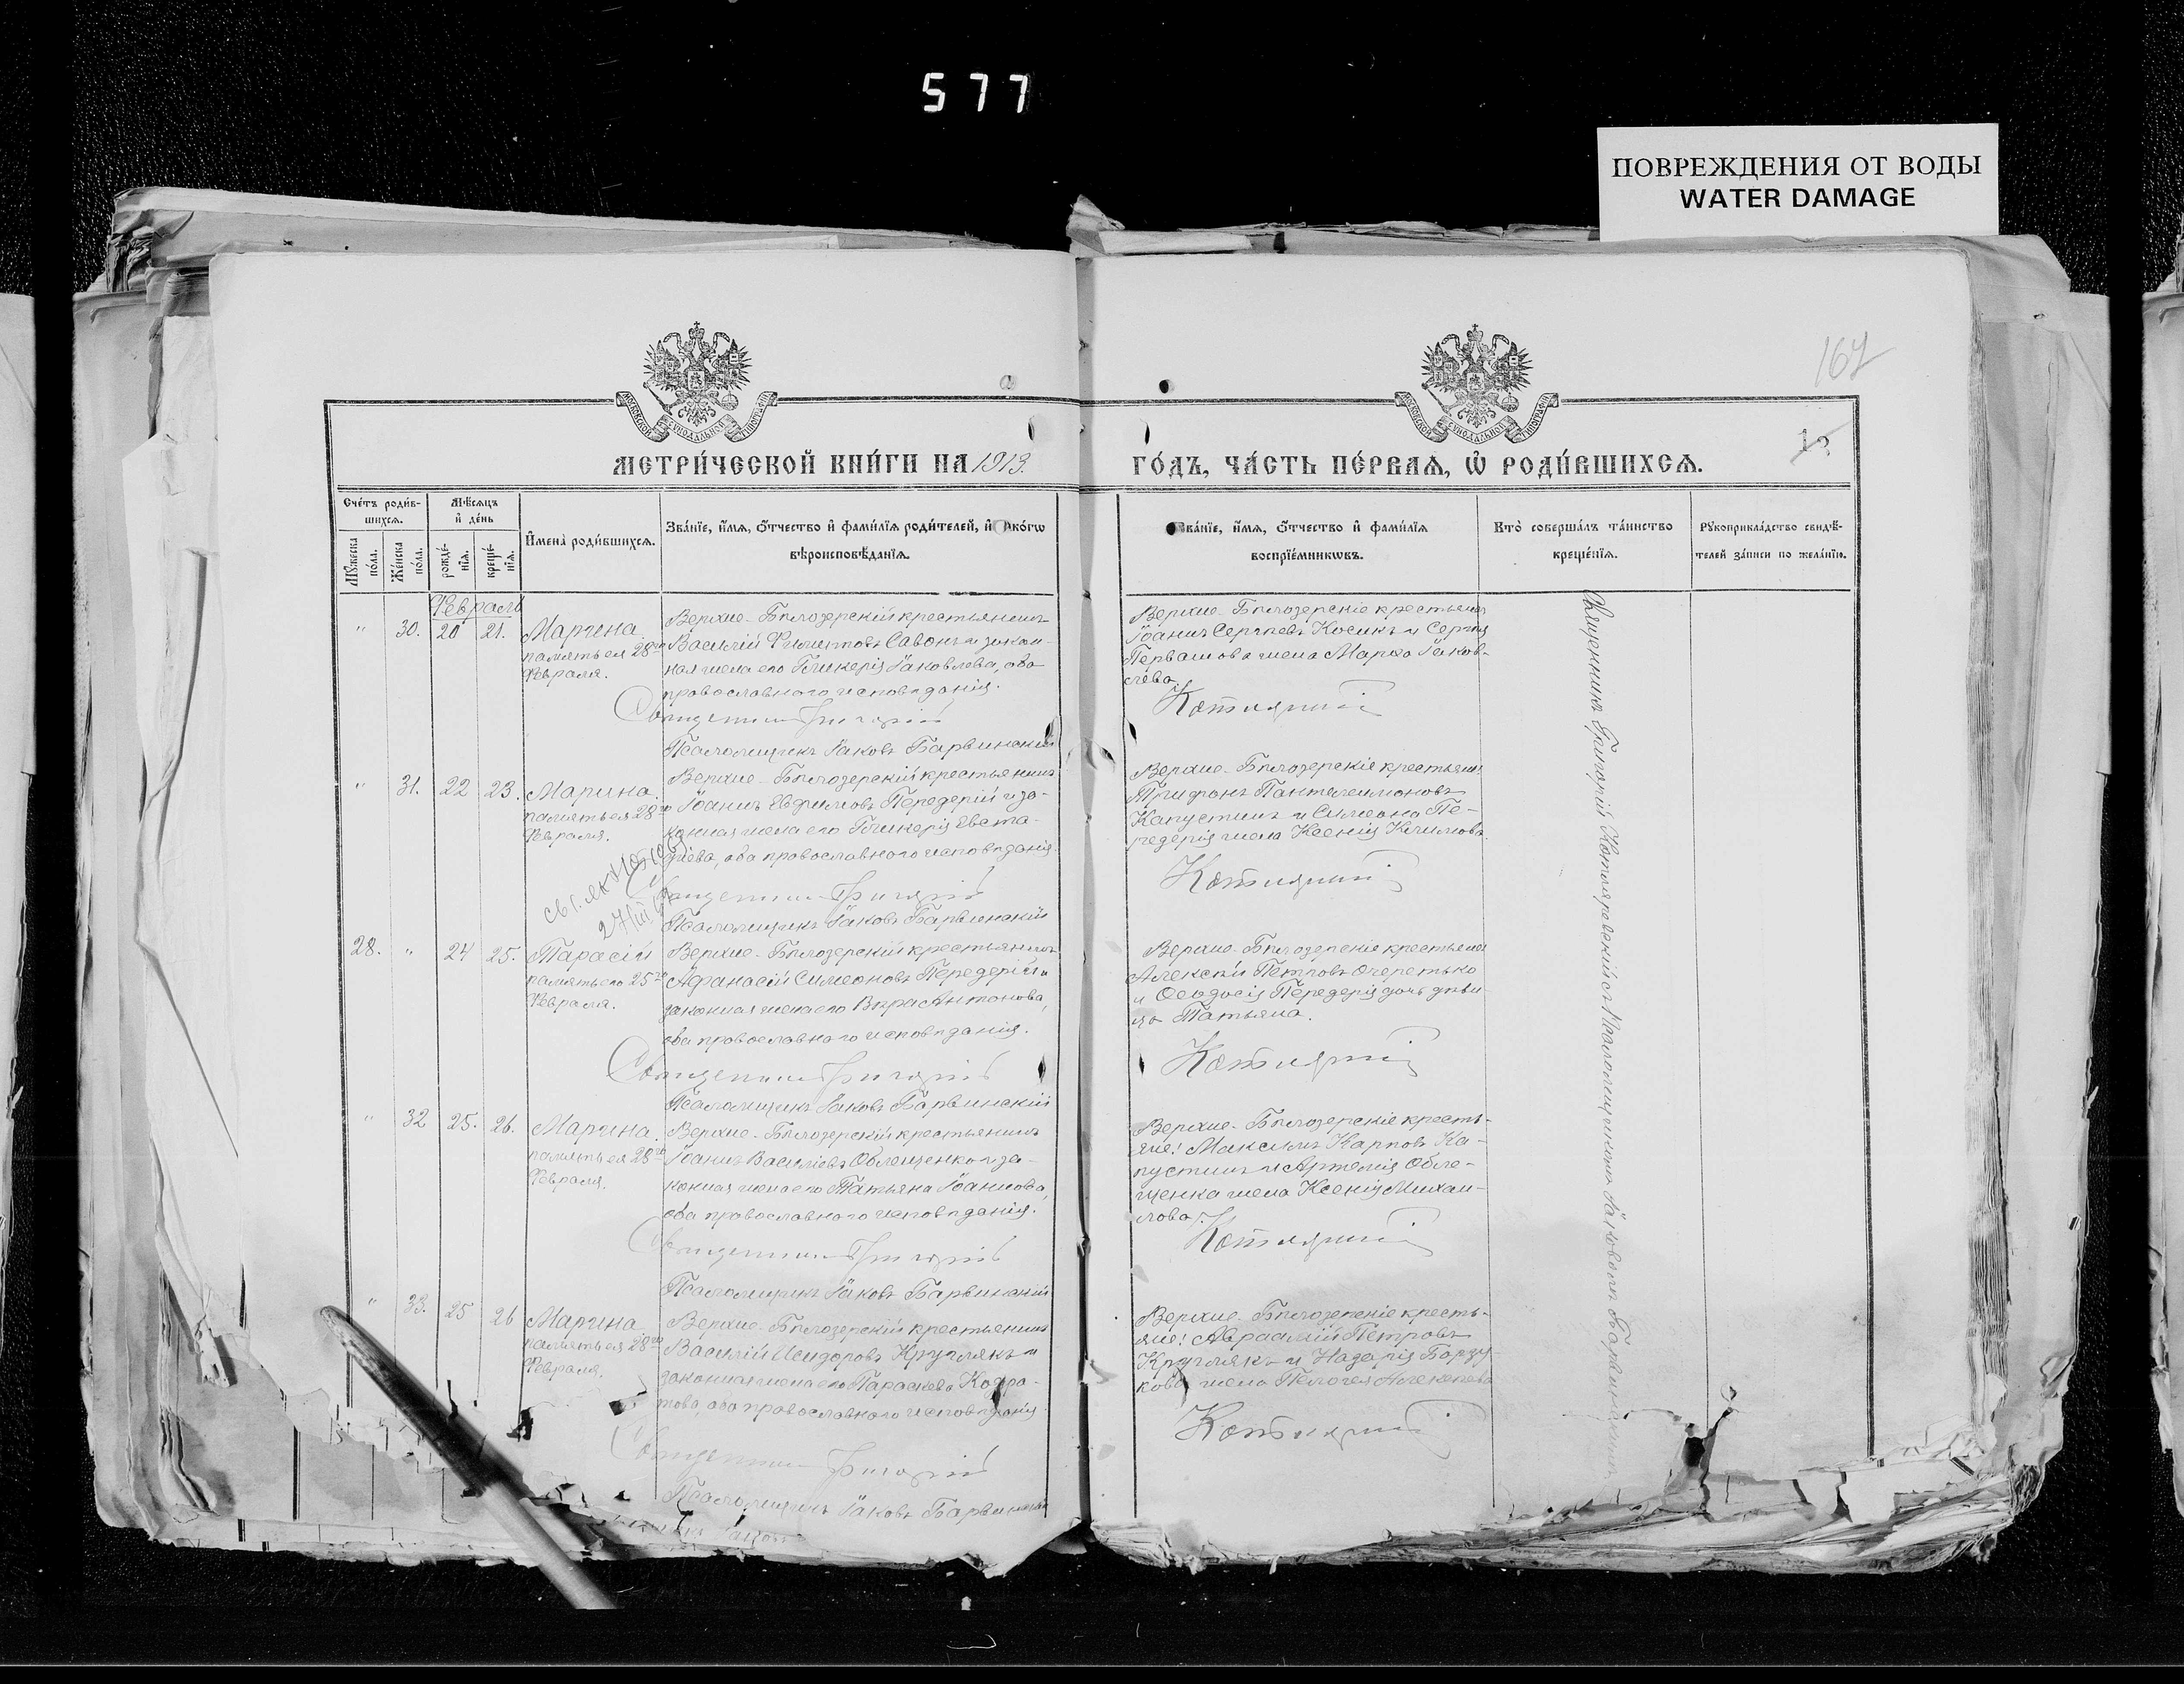 577
ПОВРЕЖДЕНИЯ ОТ ВОДЫ
WATER DAMAGE
167
МОСКОВСКОЙ СѴНОДАЛЬНОЙ ТИПОГРАФІИ
МОСКОВСКОЙ СѴНОДАЛЬНОЙ ТИПОГРАФІИ
МЕТРИ́ЧЕСКОЙ КНИ́ГИ НА 1913.
ГО́ДЪ, ЧА́СТЬ ПЕ́РВАѦ, Ѽ РОДИ́ВШИХСѦ.
Сче́тъ роди́в-
шихсѧ.
Мѣ́сѧцъ
и҆ де́нь
Мꙋ́жеска по́ла.
Же́нска по́ла.
рожде́-
нїѧ.
креще́-
нїѧ.
И҆мена̀ роди́вшихсѧ.
Зва́нїе, и҆́мѧ, ѻ҆́тчество и҆ фами́лїѧ роди́телей, и҆ како́гѡ
вѣроисповѣ́данїѧ.
Зва́нїе, и҆́мѧ, ѻ҆́тчество и҆ фами́лїѧ
воспрїе́мникѡвъ.
Кто̀ соверша́лъ та́инство
креще́нїѧ.
Рꙋкоприкла́дство свидѣ́-
телей за́писи по жела́нїю.
Февраль
" 30. 20 21. Марина
память ея 28го
Февраля.
Верхне-Бѣлозерскій крестьянинъ
Василій Филиптовъ Савонъ и закон-
ная жена его Гликерія Іаковлева, оба
православнаго исповѣданія.
Священникъ Григорій
Псаломщикъ Іаковъ Барвинскій
Верхне-Бѣлозерскіе крестьяне
Іоаннъ Сергѣевъ Косикъ и Сергія
Первашова жена Марѳа Іаков-
лева.
Котляревскій
" 31. 22 23. Марина.
память ея 28го
Февраля.
Верхне-Бѣлозерскій крестьянинъ
Іоаннъ Евфимовъ Передерій и за-
конная жена его Гликерія Евста-
фіева, оба православнаго исповѣданія.
Священникъ Григорій
Псаломщикъ Іаковъ Барвинскій
Верхне-Бѣлозерскіе крестьяне:
Трифонъ Пантелеимоновъ
Капустинъ и Симеона Пе-
редерія жена Ксенія Климова.
Котляревскій
27/III
28. " 24 25. Тарасій
память его 25го
Февраля.
Верхне-Бѣлозерскій крестьянинъ
Афанасій Симеоновъ Передерій и
законная жена его Вѣра Антонова,
оба православнаго исповѣданія.
Священникъ Григорій
Псаломщикъ Іаковъ Барвинскій
Верхне-Бѣлозерскіе крестьяне
Алексѣй Петровъ Очеретько
и Ѳеодосія Передерія дочь дѣви-
ца Татьяна.
Котляревскій
" 32 25. 26. Марина.
память ея 28го
Февраля.
Верхне-Бѣлозерскій крестьянинъ
Іоаннъ Василіевъ Облещенко и за-
конная жена его Татьяна Іоаннова,
оба православнаго исповѣданія.
Священникъ Григорій
Псаломщикъ Іаковъ Барвинскій
Верхне-Бѣлозерскіе кресть-
яне: Максимъ Карповъ Ка-
пустинъ и Артемія Обле-
щенка жена Ксенія Михаи-
лова.
Котляревскій
" 33. 25 26 Марина
память ея 28го
Февраля.
Верхне-Бѣлозерскій крестьянинъ
Василій Исидоровъ Круглякъ и
законная жена его Параскева Кодра-
това, оба православнаго исповѣданія.
Священникъ Григорій
Псаломщикъ Іаковъ Барвинскій
Верхне-Бѣлозерскіе кресть-
яне: Авраамій Петровъ
Круглякъ и Назарія Борзу-
кова жена Пелагея Алексѣева
Котляревскій
Священникъ Григорій Котляревскій съ Псаломщикомъ Іаковомъ Барвинскимъ